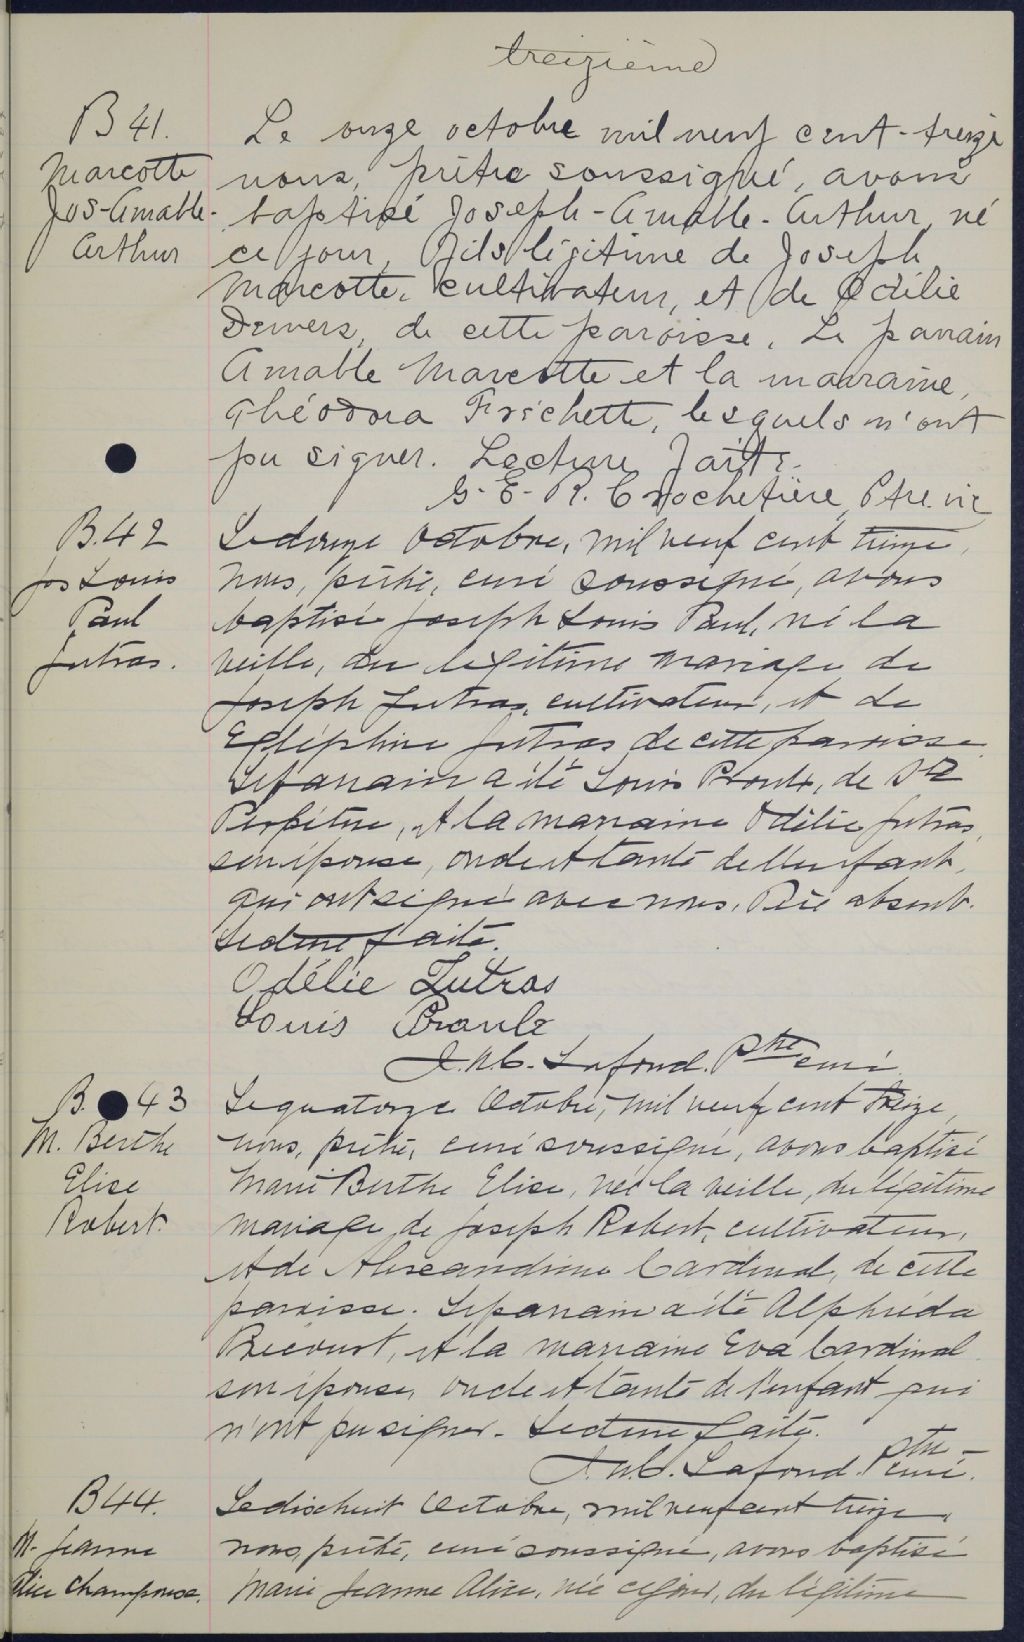 treizième
B 41.
Marcotte
Jos-Amable-
Arthur
Le onze octobre mil neuf cent-treize
nous, prêtre soussigné, avons
baptisé Joseph-Amable-Arthur, né
ce jour, fils légitime de Joseph
Marcotte, cultivateur, et de Odélie
Demers, de cette paroisse. Le parrain
Amable Marcotte et la marraine,
Théodora Frichette, lesquels n'ont
pu signer. Lecture faite.
G-E-R. Crochetière, Ptre. vic
B.42
Jos Louis
Paul
Jutras.
Le douze Octobre, mil neuf cent treize,
nous, prêtre, curé soussigné, avons
baptisé Joseph Louis Paul, né la
veille, du légitime mariage de
Joseph Jutras, cultivateur, et de
Jutras de cette paroisse.
Le parrain a été Louis Proulx, de Ste
Perpétue, et la marraine Odélie Jutras,
son épouse, oncle et tante de l'enfant,
qui ont signé avec nous. Père absent.
Lecture faite.
Odélie Jutras
Louis Proulx
J.N.C. Lafond. Ptre curé.
B. 43
M. Berthe
Elise
Robert
Le quatorze Octobre, mil neuf cent treize,
nous, prêtre, curé soussigné, avons baptisé
Marie Berthe Elise, née la veille, du légitime
mariage de Joseph Robert, cultivateur,
et de Alexandrine Cardinal, de cette
paroisse. Le parrain a été Alphréda
Précourt, et la marraine Eva Cardinal
son épouse, oncle et tante de l'enfant qui
n'ont pu signer. Lecture faite.
J.N.C. Lafond. Ptre curé.
B44.
M. Jeanne
Alice Champoux.
Le dixhuit Octobre, mil neuf cent treize,
nous, prêtre, curé soussigné, avons baptisé
Marie Jeanne Alice, née ce jour, du légitime